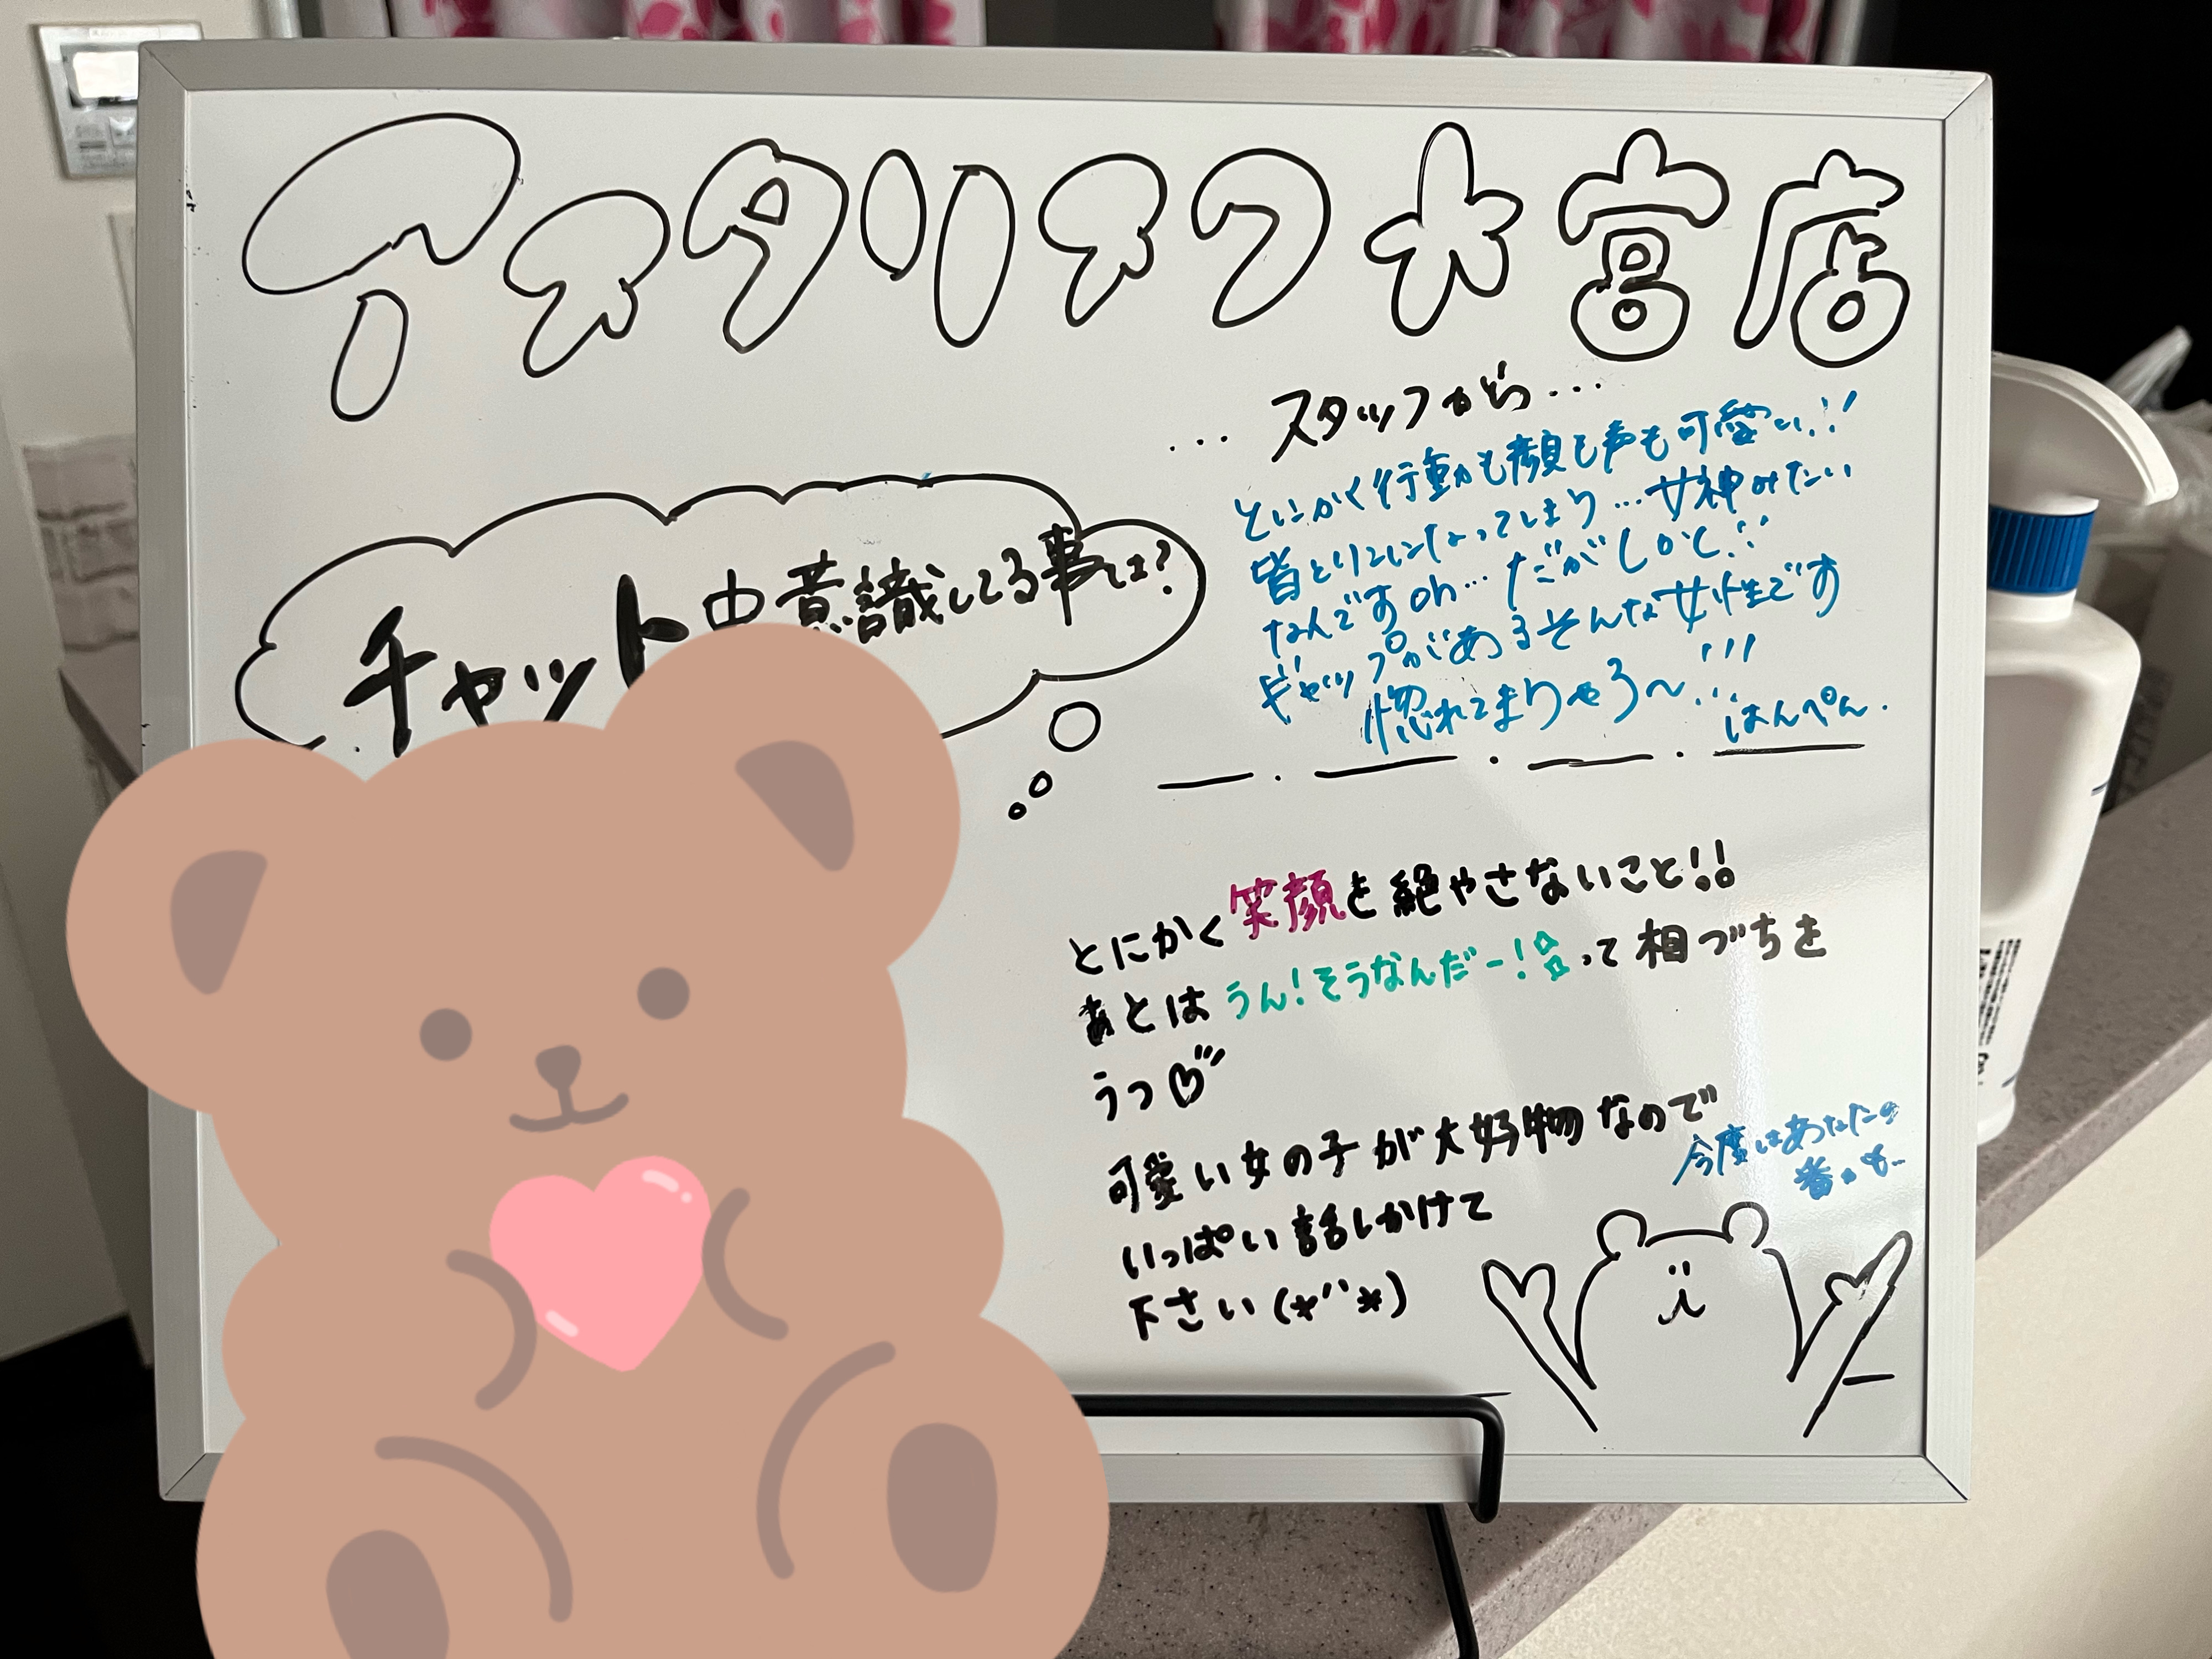 アスタリスク大宮店
チャット中意識してる事は?
... スタッフから...
とにかく行動も顔も声も可愛い!!
皆とりこになってしまう...女神みたい
なんですoh... だがしかし!!
ギャップがあるそんな女性です
惚れてまうやろ〜!!!
はんぺん.
とにかく笑顔を絶やさないこと!!
あとはうん!そうなんだー!って相づちを
うつ
可愛い女の子が大好物なので
いっぱい話しかけて
下さい(*´`*)
今度はあなたの
番かも...